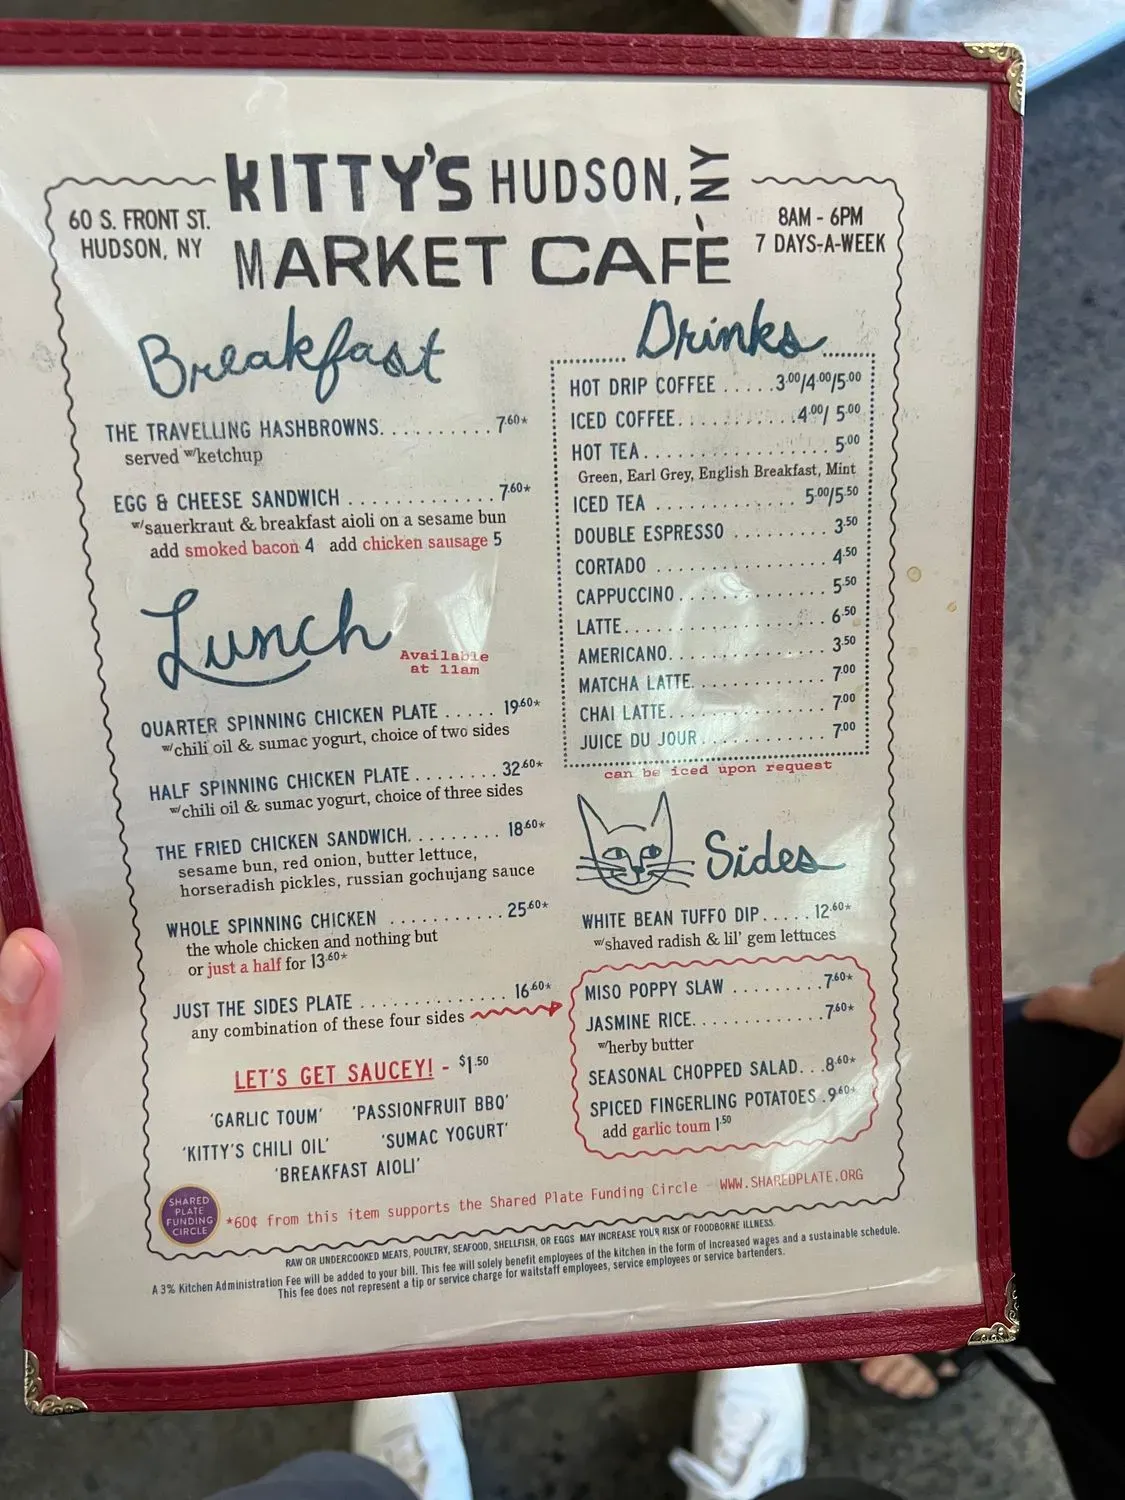 KITTY'S HUDSON, NY
MARKET CAFÈ
60 S. FRONT ST.
HUDSON, NY
8AM - 6PM
7 DAYS-A-WEEK
Breakfast
THE TRAVELLING HASHBROWNS. . . . . . . . . . 7.60*
served w/ketchup
EGG & CHEESE SANDWICH . . . . . . . . . . . . 7.60*
w/sauerkraut & breakfast aioli on a sesame bun
add smoked bacon 4 add chicken sausage 5
Lunch
Available
at 11am
QUARTER SPINNING CHICKEN PLATE . . . . . 19.60*
w/chili oil & sumac yogurt, choice of two sides
HALF SPINNING CHICKEN PLATE . . . . . . . . 32.60*
w/chili oil & sumac yogurt, choice of three sides
THE FRIED CHICKEN SANDWICH. . . . . . . . . 18.60*
sesame bun, red onion, butter lettuce,
horseradish pickles, russian gochujang sauce
WHOLE SPINNING CHICKEN . . . . . . . . . . . 25.60*
the whole chicken and nothing but
or just a half for 13.60*
JUST THE SIDES PLATE . . . . . . . . . . . . . . 16.60*
any combination of these four sides
LET'S GET SAUCEY! - $1.50
'GARLIC TOUM' 'PASSIONFRUIT BBQ'
'KITTY'S CHILI OIL' 'SUMAC YOGURT'
'BREAKFAST AIOLI'
Drinks
HOT DRIP COFFEE . . . . . 3.00/4.00/5.00
ICED COFFEE. . . . . . . . . . . . 4.00/ 5.00
HOT TEA. . . . . . . . . . . . . . . . . 5.00
Green, Earl Grey, English Breakfast, Mint
ICED TEA . . . . . . . . . . . . . 5.00/5.50
DOUBLE ESPRESSO . . . . . . . . . 3.50
CORTADO . . . . . . . . . . . . . . . 4.50
CAPPUCCINO. . . . . . . . . . . . . 5.50
LATTE. . . . . . . . . . . . . . . . . . 6.50
AMERICANO. . . . . . . . . . . . . . 3.50
MATCHA LATTE. . . . . . . . . . . . 7.00
CHAI LATTE. . . . . . . . . . . . . . 7.00
JUICE DU JOUR. . . . . . . . . . . 7.00
can be iced upon request
Sides
WHITE BEAN TUFFO DIP. . . . . 12.60*
w/shaved radish & lil' gem lettuces
MISO POPPY SLAW . . . . . . . . . 7.60*
JASMINE RICE. . . . . . . . . . . . . 7.60*
w/herby butter
SEASONAL CHOPPED SALAD. . . 8.60*
SPICED FINGERLING POTATOES . 9.60*
add garlic toum 1.50
SHARED
PLATE
FUNDING
CIRCLE
*60¢ from this item supports the Shared Plate Funding Circle - WWW.SHAREDPLATE.ORG
RAW OR UNDERCOOKED MEATS, POULTRY, SEAFOOD, SHELLFISH, OR EGGS MAY INCREASE YOUR RISK OF FOODBORNE ILLNESS.
A 3% Kitchen Administration Fee will be added to your bill. This fee will solely benefit employees of the kitchen in the form of increased wages and a sustainable schedule.
This fee does not represent a tip or service charge for waitstaff employees, service employees or service bartenders.